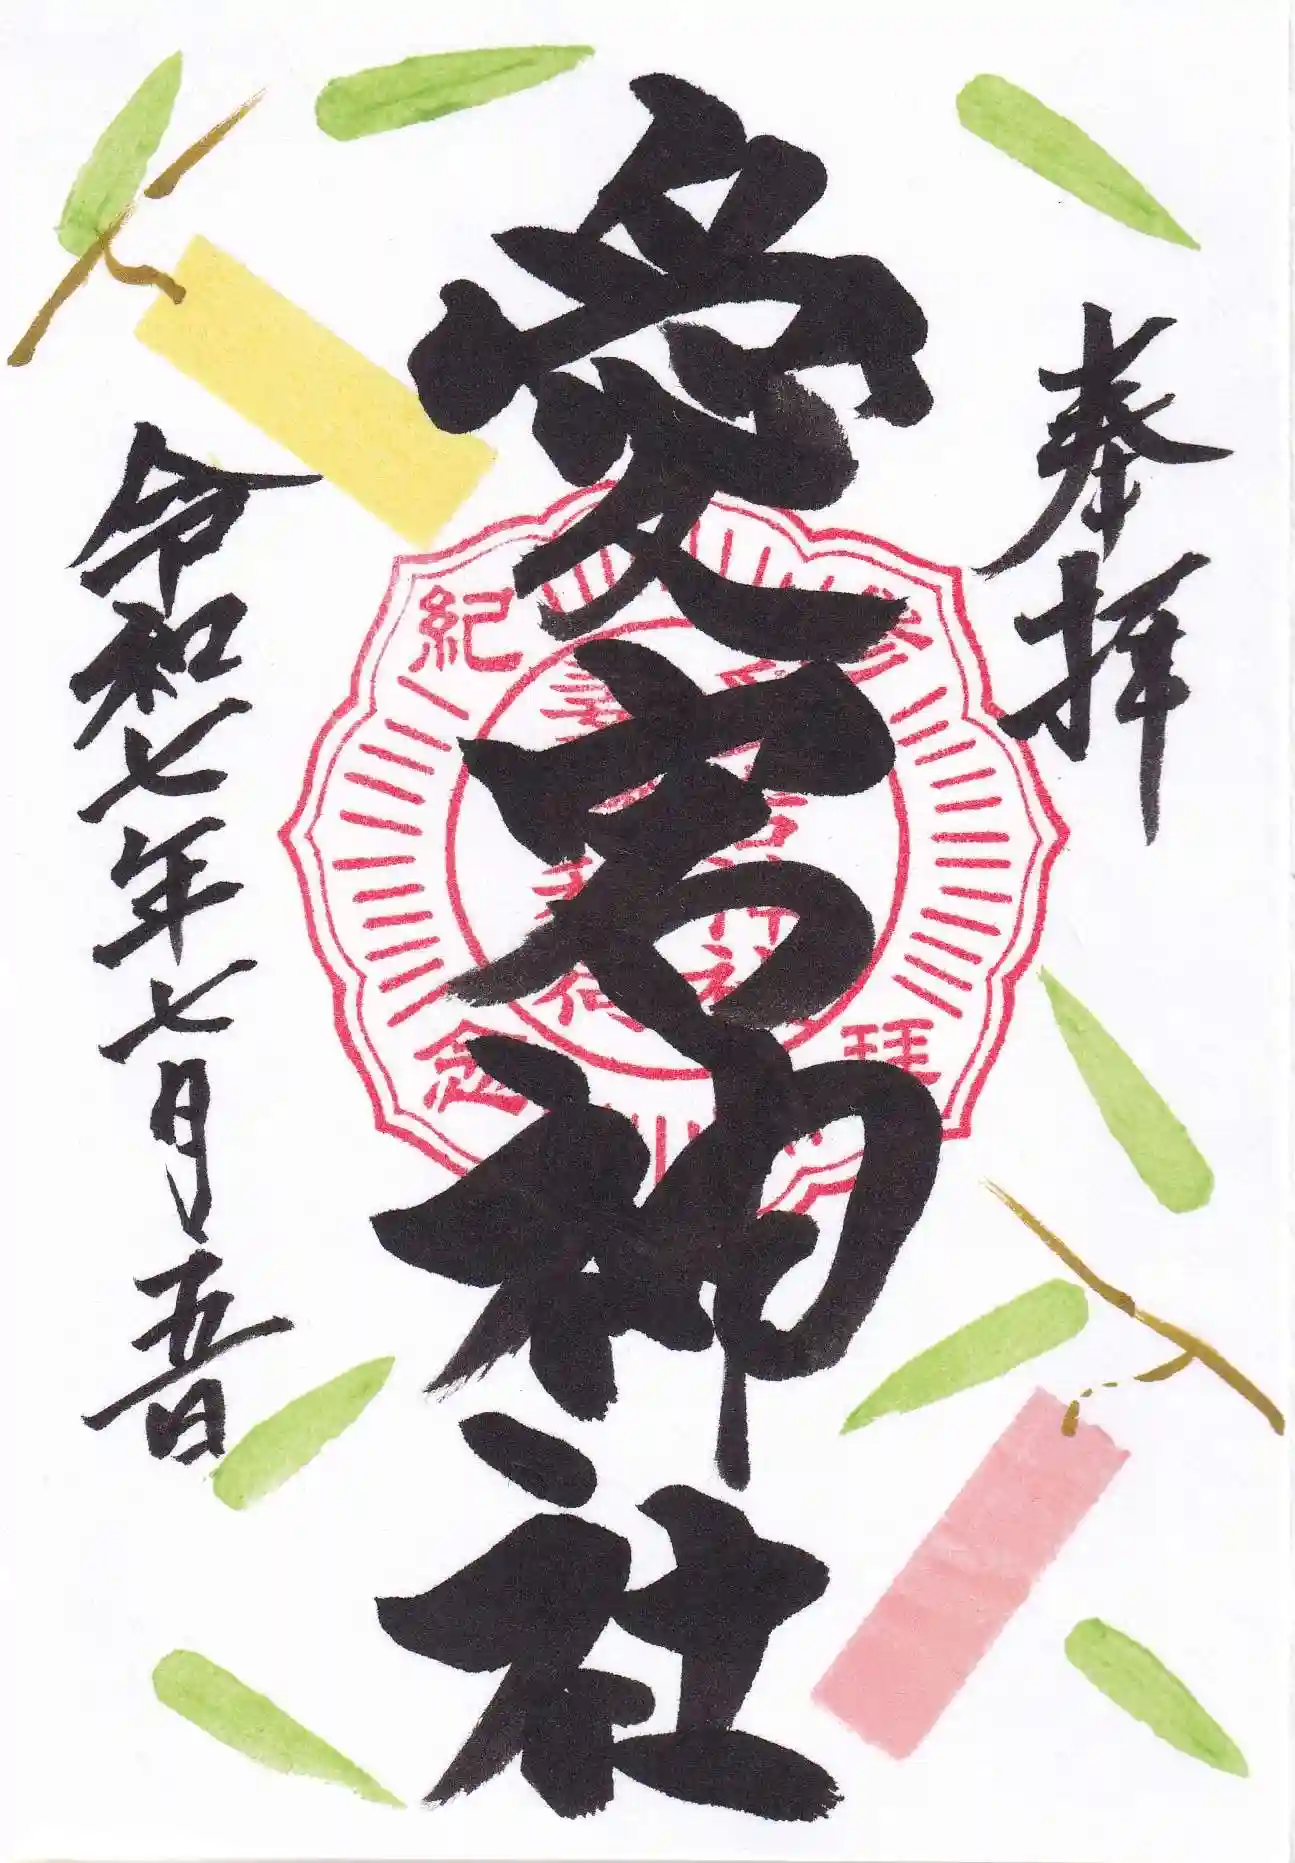 奉拝
愛宕神社
令和七年七月五日
参拝
紀念